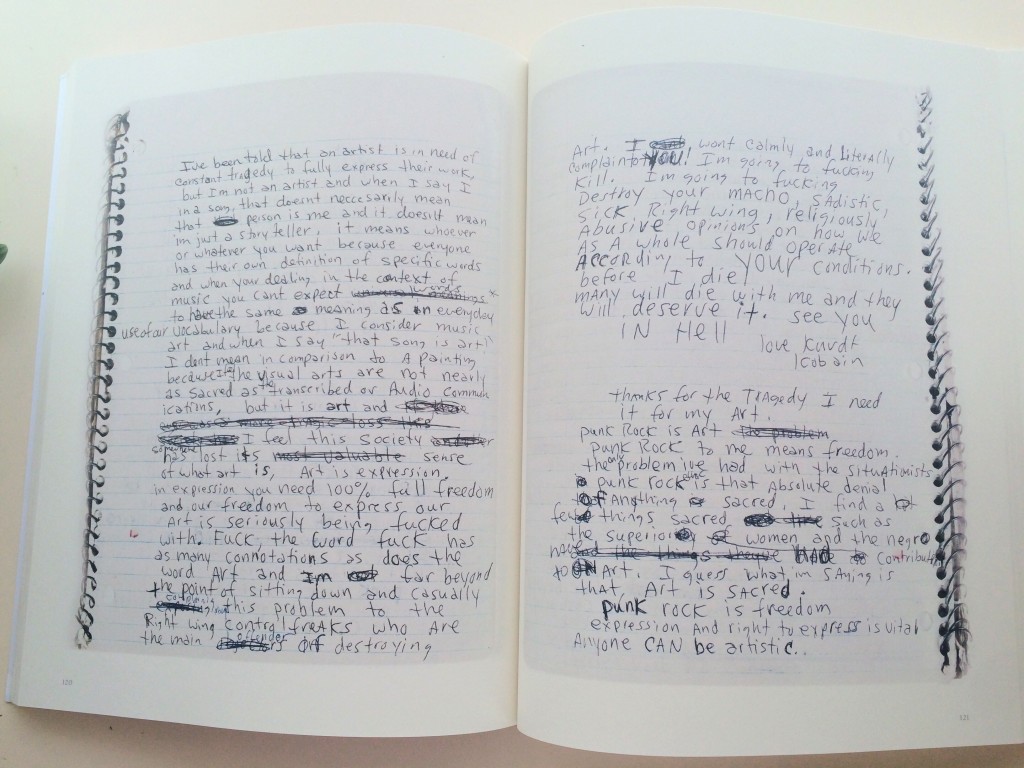 I've been told that an artist is in need of
constant tragedy to fully express their work,
but I'm not an artist and when I say I
in a song, that doesnt neccesarily mean
that person is me and it doesnt mean
im just a story teller, it means whoever
or whatever you want because everyone
has their own definition of specific words
and when your dealing in the context of
music you cant expect words
to have the same meaning as in everyday
use of our vocabulary because I consider music
art and when I say "that song is art"
I dont mean in comparison to A painting
because the visual arts are not nearly
as sacred as the transcribed or Audio Commun
ications, but it is art and
I feel this society
somewhere has lost its most valuable sense
of what art is, Art is expression,
in expression you need 100% full freedom
and our freedom to express our
Art is seriously being fucked
with. Fuck, the word fuck has
as many connotations as does the
word Art and Im far beyond
the point of sitting down and casually
complaining this problem to the
Right wing control freaks who Are
the main offenders of destroying
120
Art. I wont calmly and Literally
complain to YOU! I'm going to fucking
Kill. I'm going to fucking
Destroy your macho, sadistic,
sick Right wing, religiously
Abusive opinions on how we
As A whole should operate
According to YOUR conditions.
before I die
many will die with me and they
will deserve it. see you
IN Hell
love Kurdt
Kobain
thanks for the Tragedy I need
it for my Art.
punk Rock is Art the problem
punk Rock to me means freedom.
the only problem ive had with the situationists
punk rock is that Absolute denial
of Anything sacred. I find a
few things sacred such as
the superiority of women and the negro
Contributi
to Art. I guess what im saying is
that Art is sacred.
punk rock is freedom
expression And right to express is vital
Anyone CAN be artistic..
121